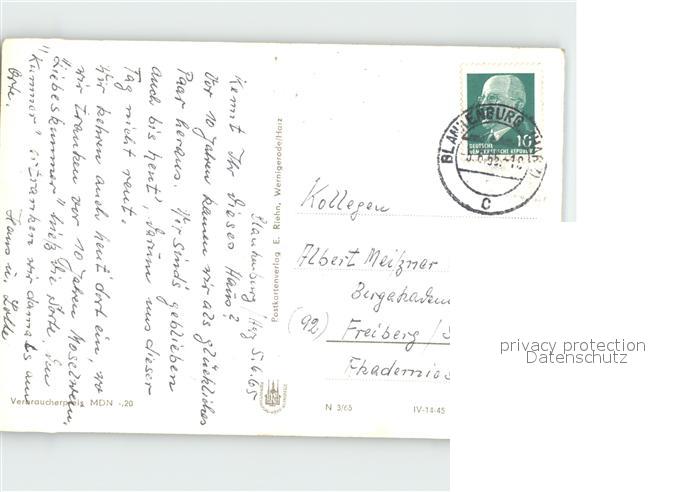 Blankenburg/Harz 5.6.65
Kennt Ihr dieses Haus?
Vor 10 Jahren kamen wir als glückliches
Paar heraus. Wir sind's geblieben
auch bis heut', darum uns dieser
Tag nicht reut.
Wir kehren auch heut dort ein, wo
wir tranken vor 10 Jahren Moselwein.
"Liebeskummer" hieß die Sorte, den
"Kummer" tranken wir damals am
Orte.
Hans u. Lotte
Verbraucherpreis MDN -,20
Postkartenverlag E. Riehn, Wernigerode/Harz
N 3/65
IV-14-45
10
DEUTSCHE
DEMOKRATISCHE REPUBLIK
BLANKENBURG (HARZ)
C
Kollegen
Albert Meitzner
Bergakadem
(92) Freiberg /S
Akademies
privacy protection
Datenschutz